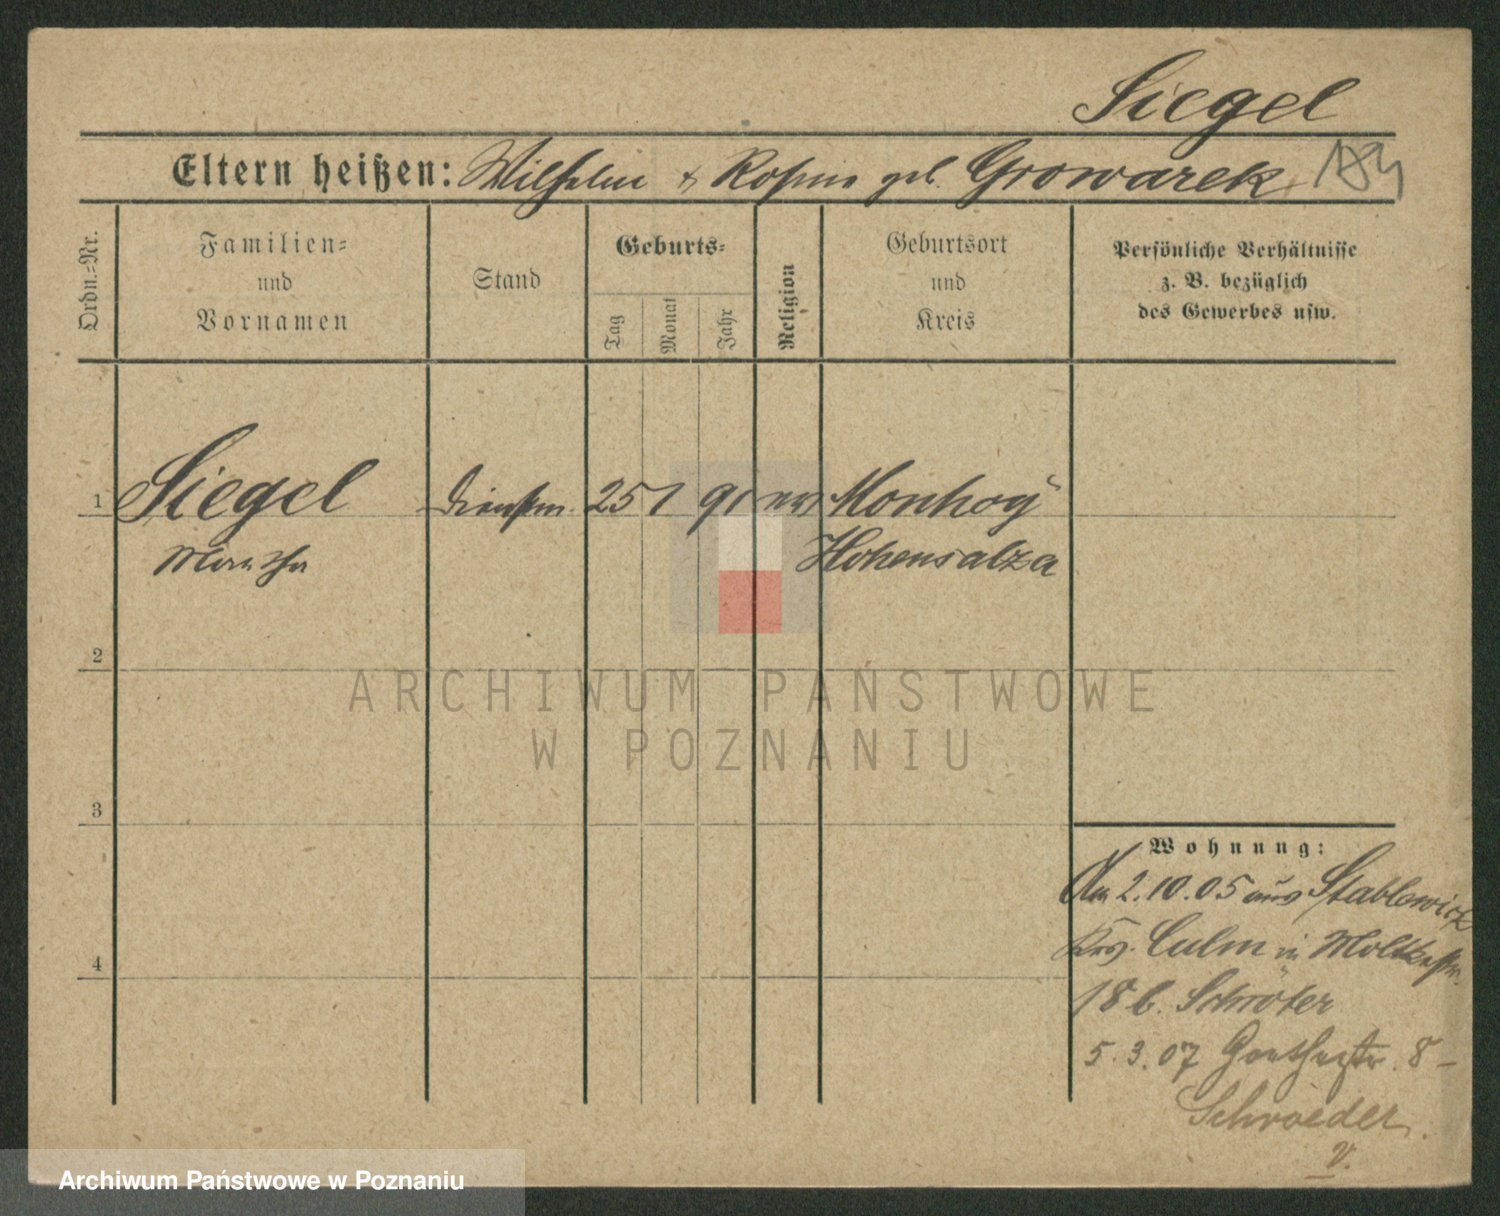 Siegel
Eltern heißen: Wilhelm & Rosina geb. Growarek 184
Ordn.=Nr.
Familien=
und
Vornamen
Stand
Geburts=
Tag
Monat
Jahr
Religion
Geburtsort
und
Kreis
Persönliche Verhältnisse
z. B. bezüglich
des Gewerbes usw.
1 Siegel Dienstm. 25 1 91 ev
Martha Hohensalza
2
3
4
ARCHIWUM PAŃSTWOWE
W POZNANIU
Wohnung:
Am 2.10.05 aus
Krs. Culm in Moltkestr.
18 b. Schröter
5.3.07 Goethestr. 8 -
Schroeder.
v.
Archiwum Państwowe w Poznaniu